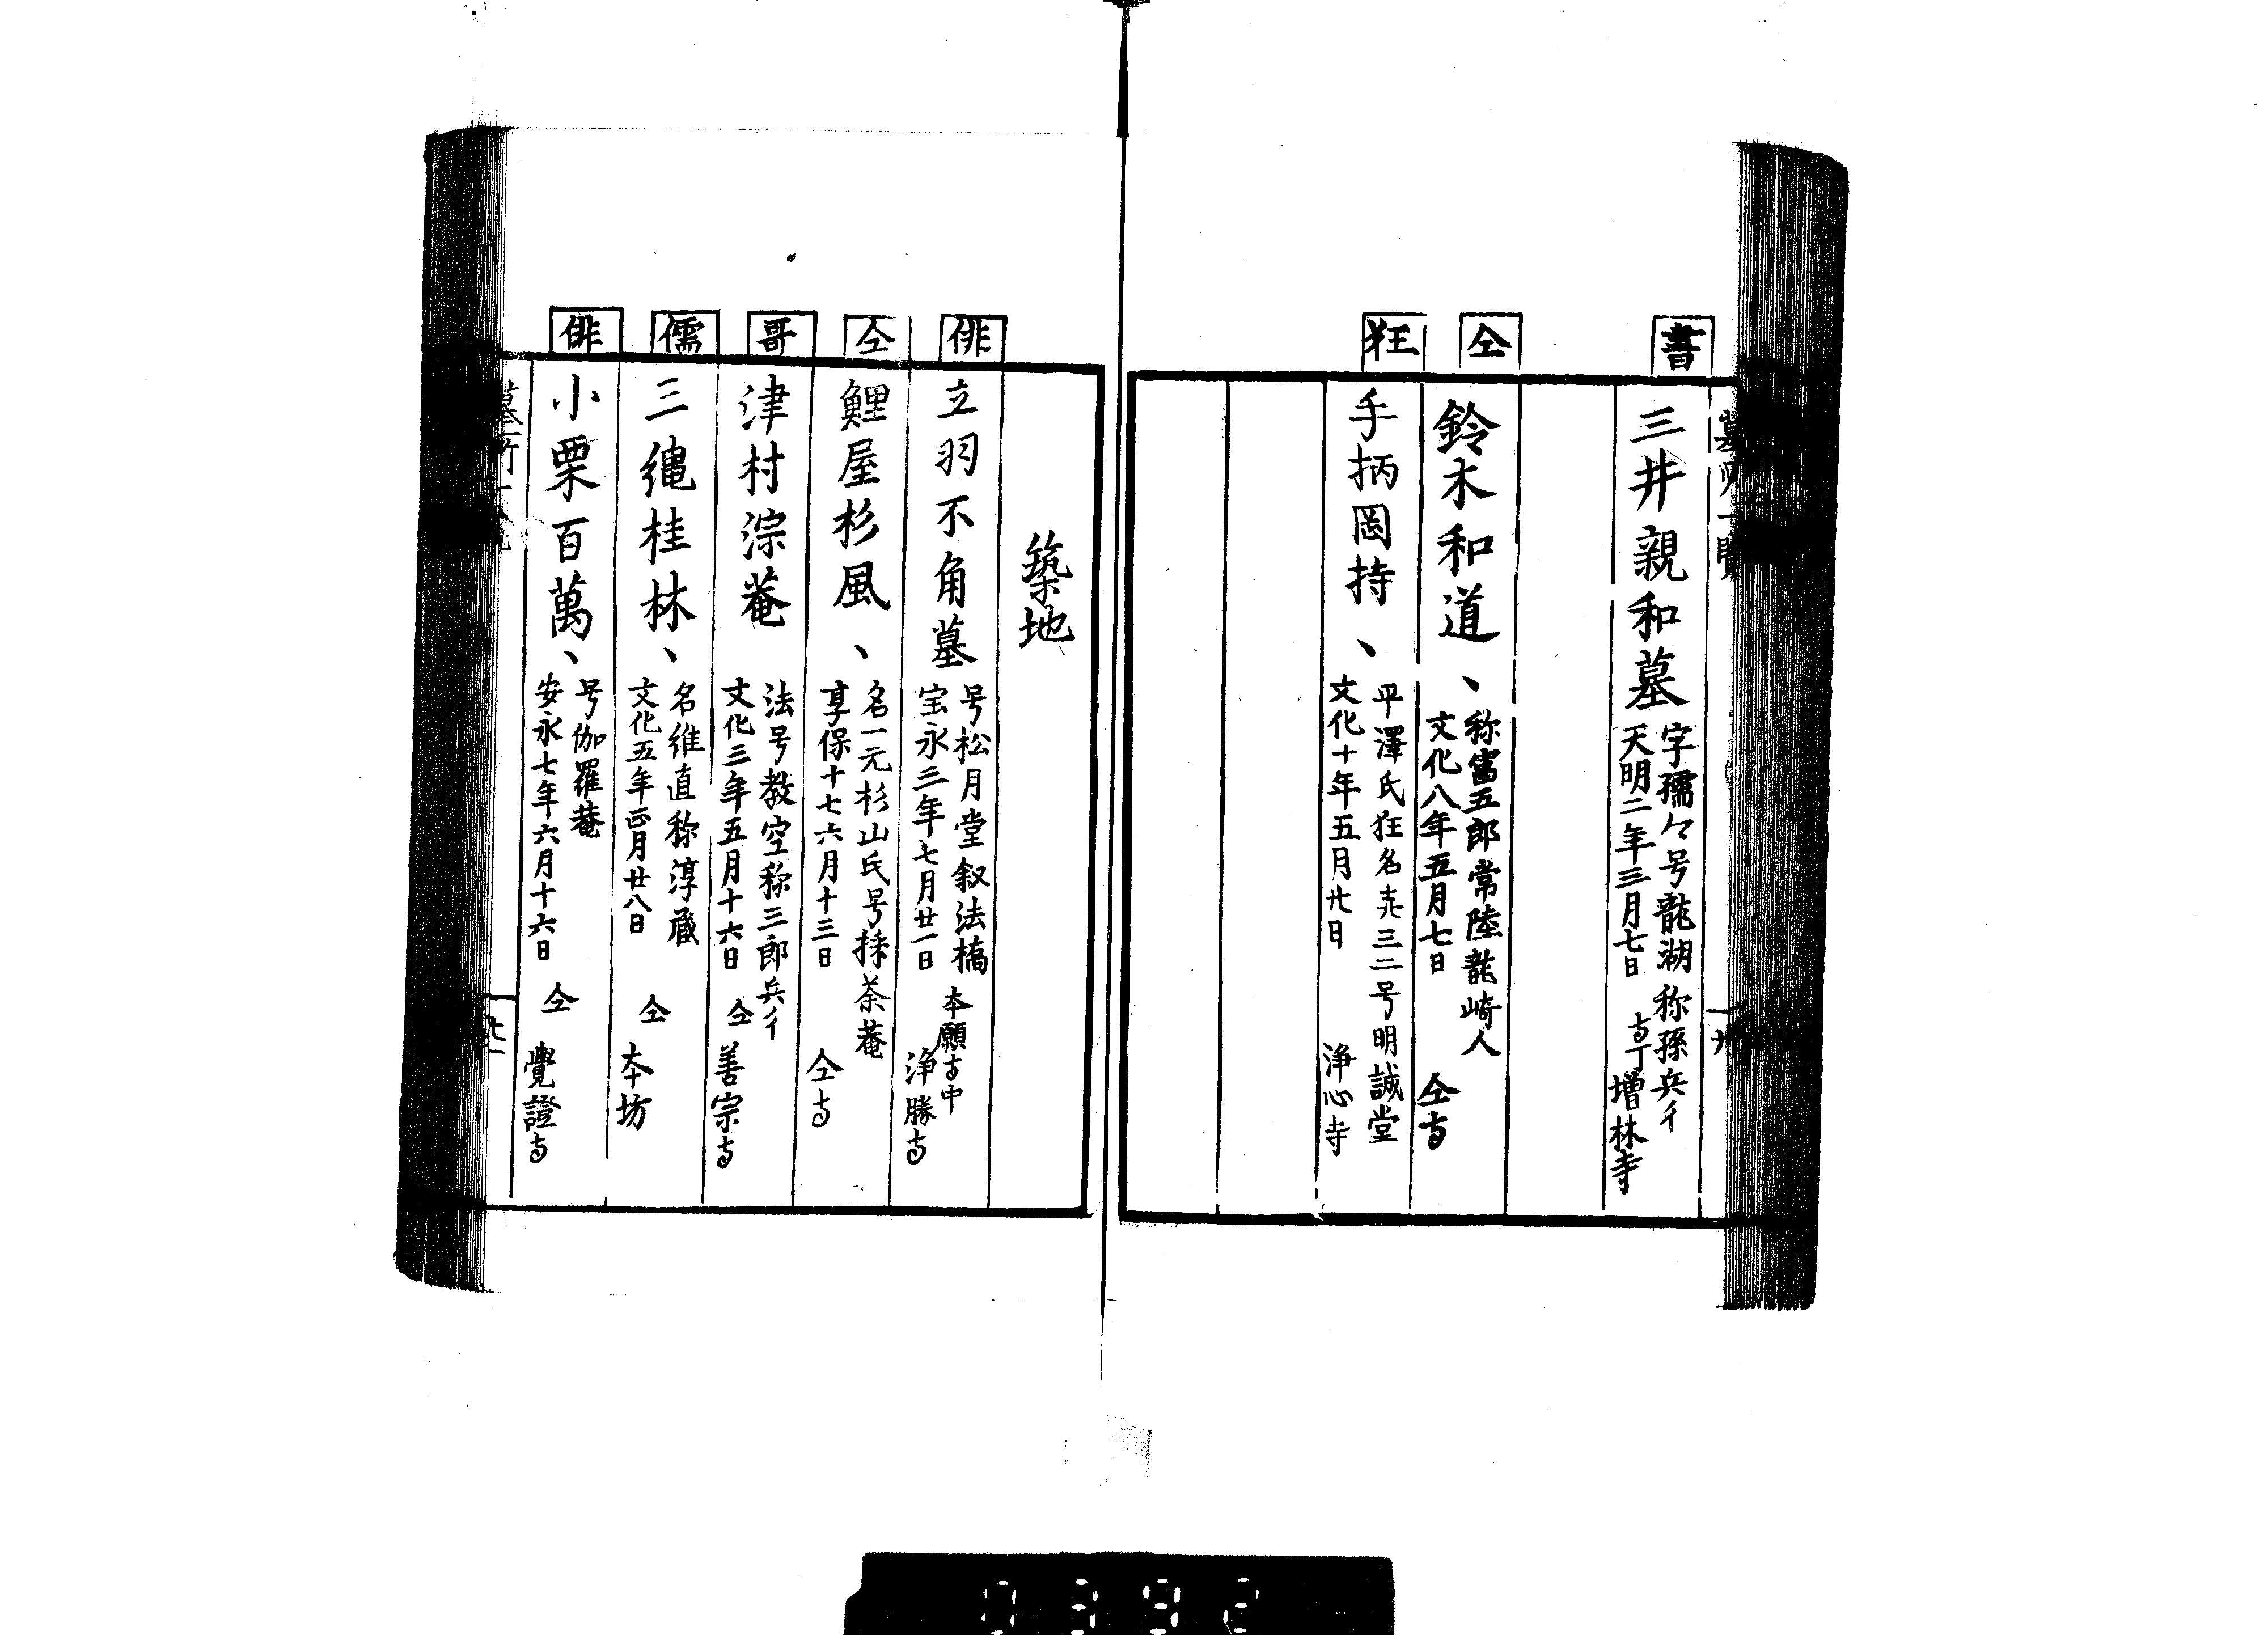 書
三井親和墓
字孺々号龍湖称孫兵ヱ
天明二年三月七日
寺丁
増林寺
仝
鈴木和道、
称富五郎常陸龍崎人
文化八年五月七日
仝寺
狂
手柄岡持、
平澤氏狂名㐂三二号明誠堂
文化十年五月廿日
浄心寺
築地
俳
立羽不角墓
号松月堂叙法橋
宝永三年七月廿一日
本願寺中
浄勝寺
仝
鯉屋杉風、
名一元杉山氏号採荼菴
享保十七六月十三日
仝寺
哥
津村淙菴
法号教空称三郎兵ヱ
文化三年五月十六日
仝
善宗寺
儒
三縄桂林、
名維直称淳蔵
文化五年正月廿八日
仝
本坊
俳
小栗百萬、
号伽羅菴
安永七年六月十六日
仝
覺證寺